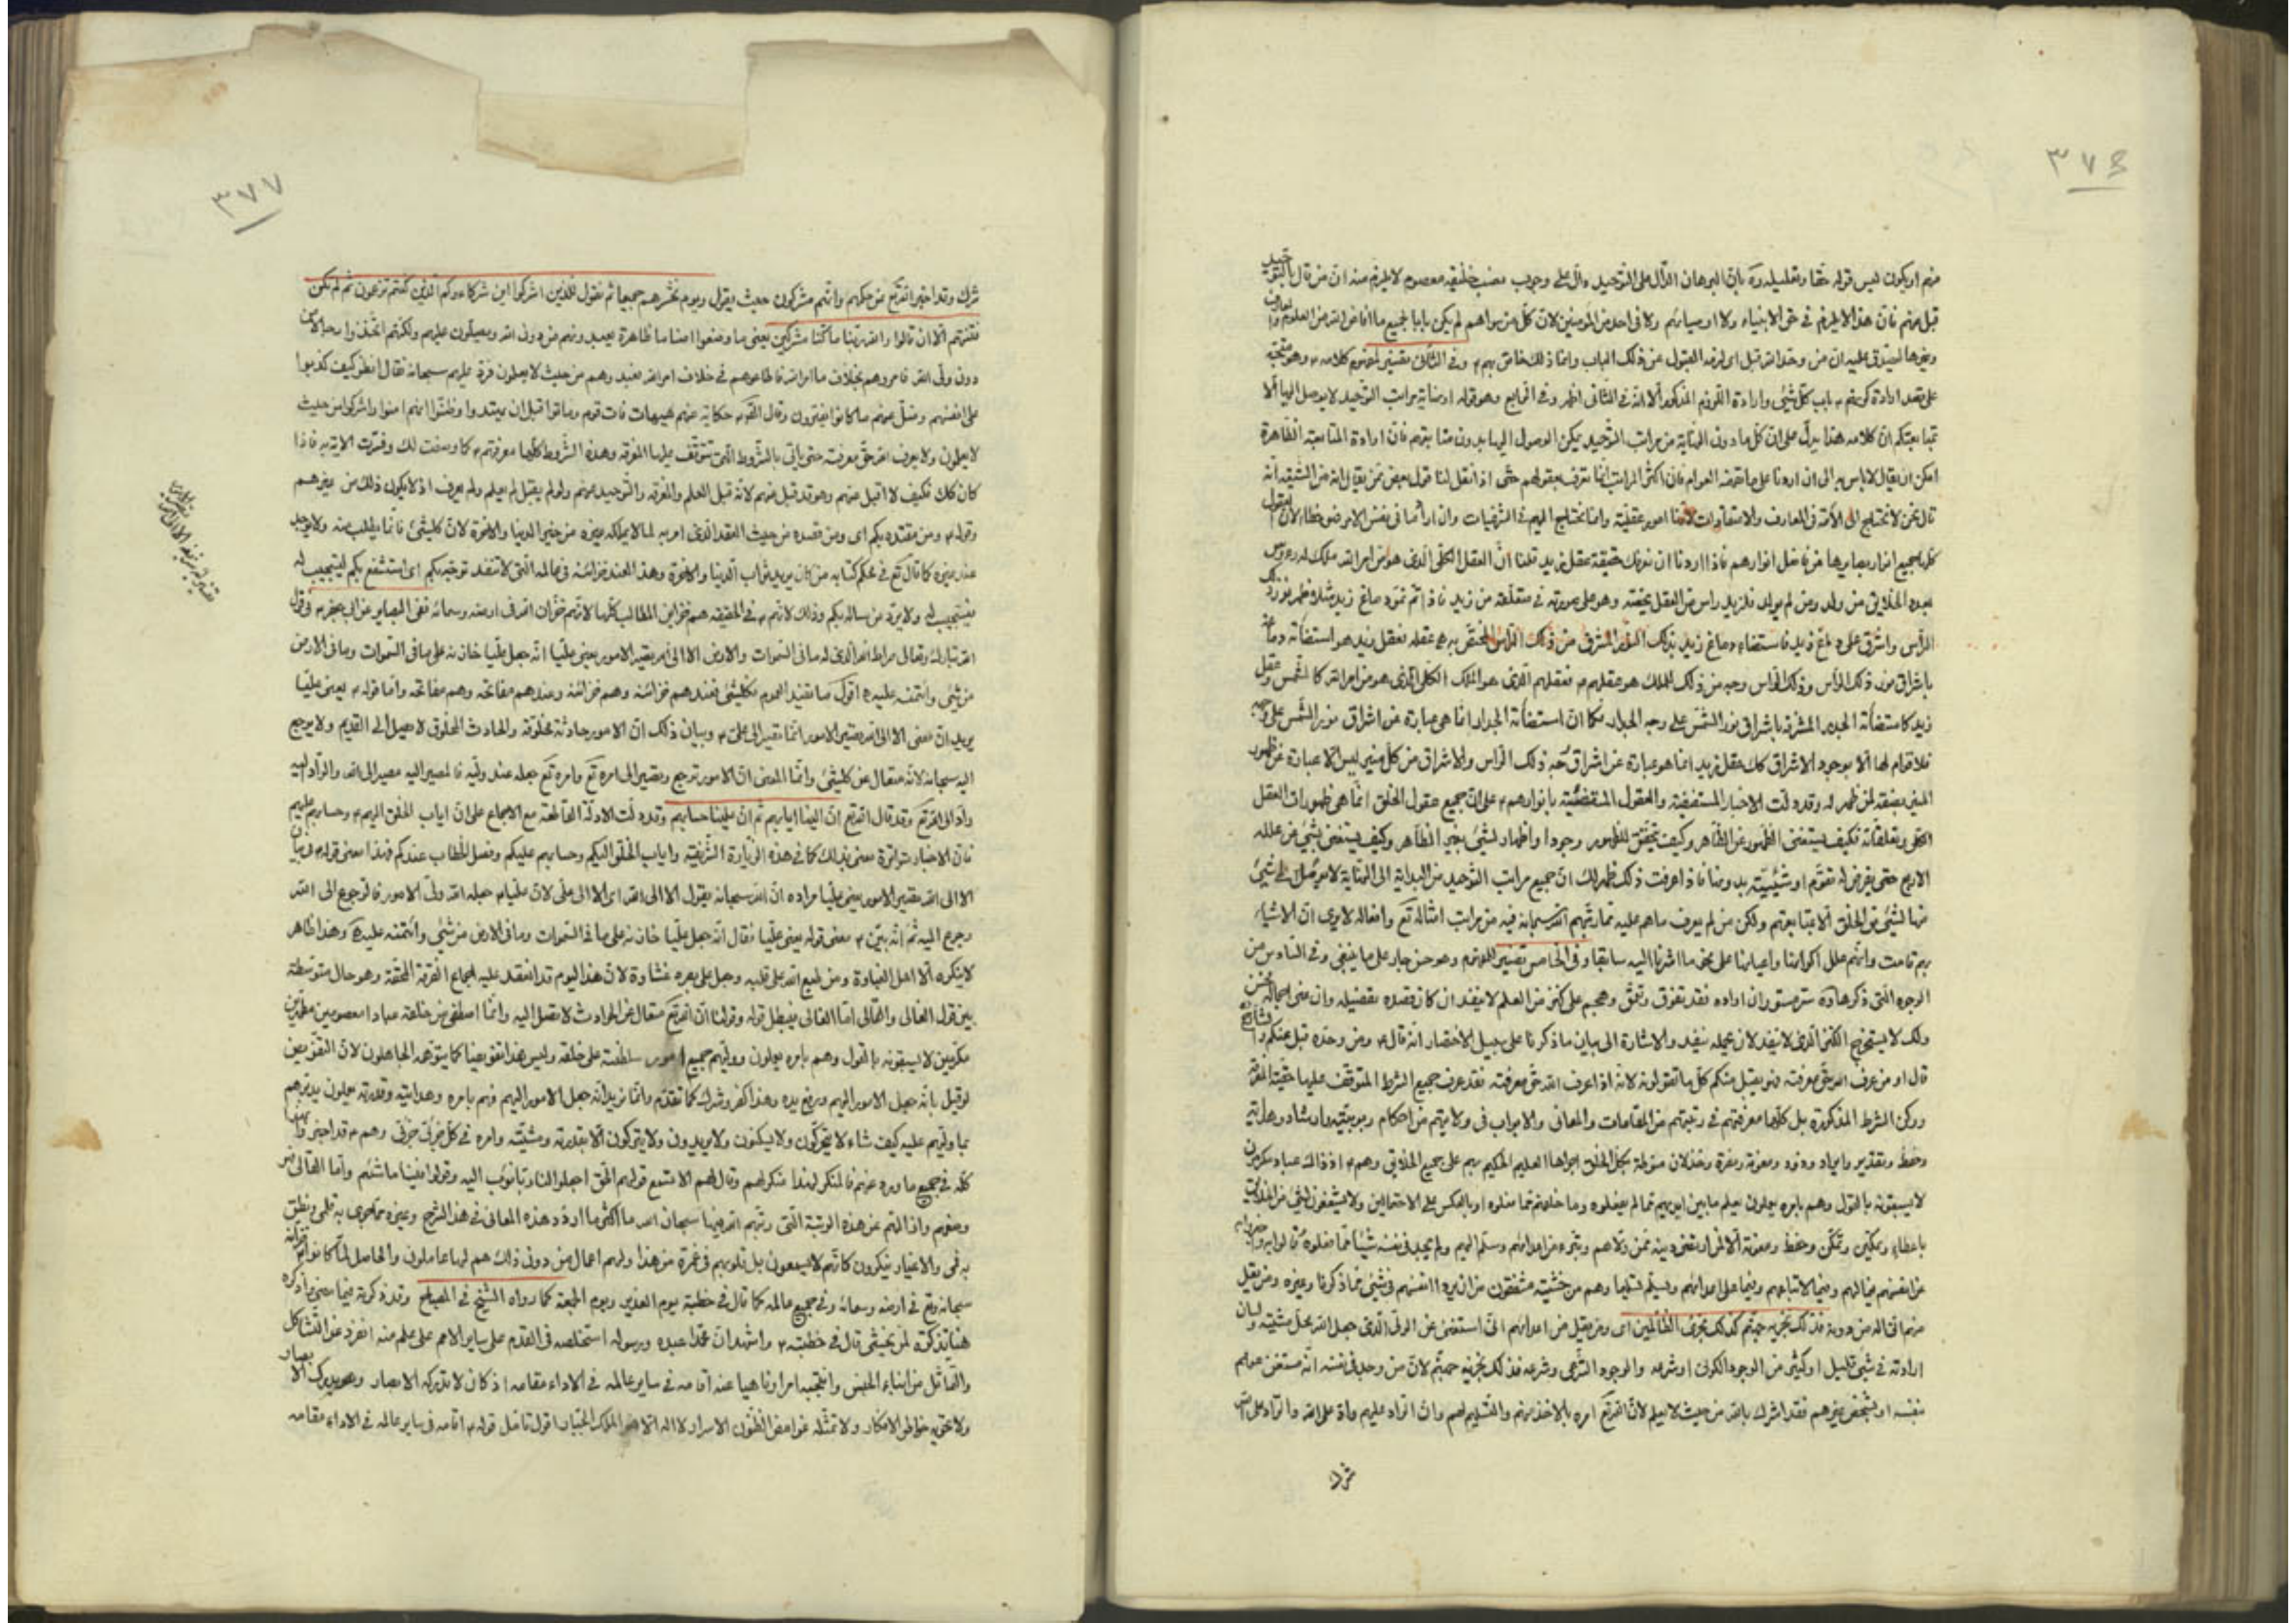 ٣٧٦
منهم او يكون ليس قوله حقا وتعليله ره بان البرهان الدال على التوحيد دال على وجوب نصب خليفة معصوم لا يلزم منه ان من قال بالتوحيد
قبل منهم فان هذا لا يلزم في حق الانبياء ولا اوصيائهم ولا في احد من المؤمنين لان كل من سواهم لم يكن بابا لجميع ما افاض الله من العلوم
وغيرها ليصدق عليه ان من وحد الله قبل اى لزمه القبول عن ذلك الباب وانما ذلك خاص بهم
على بعد ارادة كونهم باب كل شئ وارادة اللزوم المذكور
تمتابعتكم ان كلامه هذا يدل على ان كل ما دون النهاية من مراتب التوحيد يمكن الوصول اليها بدون متابعتهم فان ارادة المتابعة الظاهرة
امكن ان يقال لا باس به الى ان اردنا على ما تعرفه العوام فان اكثر المراتب انما تعرف بعقولهم حتى
قال نحن لا نحتاج الى الائمة في المعارف والاعتقادات لانها امور عقلية وانما نحتاج اليهم في الشرعيات
فاذا اردنا ان نعرف حقيقة عقل زيد قلنا ان العقل الكلى الذى هو من امر الله ملك له رءوس
بعدد الخلايق من ولد ومن لم يولد فلزيد راس من العقل يخصه
الراس واشرق على دماغ زيد فاستضاء دماغ زيد بذلك النور المشرق من ذلك الراس المختص به
باشراق نور ذلك الراس وذلك الراس وجه من ذلك الملك هو عقلهم فعقلهم الذى هو الملك الكلى الذى هو من امر الله كالشمس وعقل
زيد كاستضاءة الجدار المشرقة باشراق نور الشمس على وجه الجدار فكما ان استضاءة الجدار انما هى عبارة عن اشراق نور الشمس على
فلا قوام لها الا بوجود الاشراق كك عقل زيد انما هو عبارة عن اشراق وجه ذلك الراس والاشراق من كل منير ليس الا عبارة عن ظهور
المنير بصفته لمن ظهر له وقد دلت الاخبار المستفيضة والعقول المستضيئة بانوارهم على ان جميع عقول الخلق انما هى ظهورات العقل
الكلى وتعلقاته فكيف يستغنى الظهور عن الظاهر وكيف يتحقق للظهور وجودا واظهار لشئ بغير الظاهر وكيف يستغنى شئ عن علله
الاربع حتى يفرض له تقوم او شيئية بدونها فاذا عرفت ذلك ظهر لك ان جميع مراتب التوحيد من البداية الى النهاية لا يوصل الى شئ
منها لشئ من الخلق الا بمتابعتهم ولكن من لم يعرف ما هم عليه مما رتبهم الله سبحانه فيه من مراتب امثاله تع وافعاله لا يرى ان الاشياء
بهم قامت وانهم علل اكوانها واعيانها على نحو ما اشرنا اليه سابقا وفى الخامس تفسير اللزوم وهو حسن جار على ما ينبغى وفى السادس من
الوجوه التى ذكرها ره ستر مستور ان اراده فقد تفوق وتعمق وهجم على كنز من العلم لا ينفد ان كان قصده بتفصيله
ولك لا يستخرج الكنز الذى لا ينفد لان بجمله نفيد والاشارة الى بيان ما ذكرنا على سبيل الاختصار انه قال ومن وحده قبل عنكم
قال او من عرف الله حق معرفته فهو يقبل منكم كل ما تقولونه لانه اذا عرف الله حق معرفته فقد عرف جميع الشرط المتوقف عليها حقيقة المعرفة
وركن الشرط المذكورة بل كلها معرفتهم في رتبتهم من المقامات والمعانى والابواب في ولايتهم من احكام ربوبيته وارشاد وهداية
وحفظ وتقدير وايجاد وذود ومعونة
لا يسبقونه بالقول وهم بامره يعملون يعلم ما بين ايديهم مما لم يفعلوه وما خلفهم مما فعلوه او بالعكس على الاحتمالين ولا يشفعون لشئ من الخلق
باعطاء وتمكين وحفظ ومعونة الا لمن ارتضى دينه ممن ولاهم وتبرء من اعدائهم وسلم اليهم ولم يجد في نفسه شيئا مما فعلوه
وبها لاتباعهم وبها على اعدائهم ويسلم تسليما وهم من خشيته مشفقون من ان يردوا انفسهم في شئ مما ذكرنا وغيره ومن يقل
منهم انى اله من دونه فذلك نجزيه جهنم كذلك نجزى الظالمين اى ومن يقل من اعدائهم انى استغنى عن الولى الذى جعل الله محل مشيته ولسان
ارادته في شئ قليل او كثير من الوجود الكونى او شرعه والوجود الشرعى وشرعه فذلك نجزيه جهنم لان من وجد في نفسه انه مستغن عنهم
بنفسه او بشخص غيرهم فقد اشرك بالله من حيث لا يعلم لان الله تع امره بالاخذ عنهم والتسليم لهم وان الراد عليهم راد على الله والراد على الله
شرك
٣٧٧
شرك وقد اخبر الله تع عن حكمهم وانهم مشركون حيث يقول ويوم نحشرهم جميعا ثم نقول للذين اشركوا اين شركاءكم الذين كنتم تزعمون ثم لم تكن
فتنتهم الا ان قالوا والله ربنا ما كنا مشركين يعنى ما وضعوا اصناما ظاهرة يعبدونهم من دون الله ويصلون عليهم ولكنهم اتخذوا رجالا من
دون ولى الله فامروهم بخلاف ما امر الله فاطاعوهم في خلاف امر الله فعبدوهم من حيث لا يعلمون فرد عليهم سبحانه فقال انظر كيف كذبوا
على انفسهم وضل عنهم ما كانوا يفترون وقال الله حكاية عنهم هيهات فات قوم وماتوا قبل ان يهتدوا وظنوا انهم امنوا واشركوا من حيث
لا يعلمون ولا يعرف الله حق معرفته حتى ياتى بالشروط التى تتوقف عليها المعرفة وهذه الشروط كلها معرفتهم كما وصفت لك وفسرت الاية به فاذا
كان كك فكيف لا اقبل عنهم وهو قد قبل منهم لانه قبل العلم والمعرفة والتوحيد عنهم ولو لم يقبل لم يعلم ولم يعرف اذ لا يكون ذلك من غيرهم
وقوله ومن قصده بكم اى ومن قصده من حيث القصد الذى امر به لما لا يملكه غيره من خير الدنيا والاخرة لان كل شئ فانما يطلب منه ولا يوجد
عند غيره كما قال تع في محكم كتابه من كان يريد ثواب الدنيا والاخرة وهذا العند خزائنه في عالمه التى لا تنفد توجه بكم اى استشفع بكم ليستجيب له
فيستجيب له ولا يرد من ساله بكم وذلك لانهم في الحقيقة هم خزاين المطالب كلها لانهم خزان الله في ارضه وسمائه ففى البصاير عن ابى جعفر في قول
الله تبارك وتعالى صراط الله الذى له ما في السموات والارض الا الى الله تصير الامور يعنى عليا انه جعل عليا خازنه على ما في السموات وما في الارض
من شئ وائتمنه عليه اقول ما يفيد العموم فكل شئ فعندهم خزائنه وهم خزائنه وعندهم مفاتحه وهم مفاتحه واما قوله يعنى عليا
يريد ان معنى الا الى الله تصير الامور انما تصير الى على وبيان ذلك ان الامور حادثة مخلوقة والحادث المخلوق لا يصل الى القديم ولا يرجع
اليه سبحانه لانه متعال عن كل شئ وانما المعنى ان الامور ترجع وتصير الى امره تع وامره تع جعله عند وليه فالمصير اليه مصير الى الله والراد اليه
راد الى الله تع وقد قال الله تع ان الينا ايابهم ثم ان علينا حسابهم وقد دلت الادلة القاطعة مع الاجماع على ان اياب الخلق اليهم وحسابهم عليهم
فان الاخبار متواترة معنى بذلك كما في هذه الزيارة الشريفة واياب الخلق اليكم وحسابهم عليكم وفصل الخطاب عندكم فهذا معنى قوله
الا الى الله تصير الامور يعنى عليا مراده ان الله سبحانه يقول الا الى الله اى الا الى على لان عليا جعله الله ولى الامور فالرجوع الى الله
رجوع اليه ثم انه بين معنى قوله يعنى عليا فقال انه جعل عليا خازنه على ما في السموات وما في الارض من شئ وائتمنه عليه وهذا ظاهر
لا ينكره الا اهل الغباوة ومن طبع الله على قلبه وجعل على بصره غشاوة لان هذا اليوم قد انعقد عليه اجماع الفرقة المحقة وهو حال متوسطة
بين قول الغالى والقالى اما الغالى فيبطل قوله وقولنا ان الله تع متعال عن الحوادث لا تصل اليه وانما اصطفى من خلقه عبادا معصومين مطهرين
مكرمين لا يسبقونه بالقول وهم بامره يعملون وولاهم جميع امور سلطنته على خلقه وليس هذا تفويضا كما يتوهمه الجاهلون لان التفويض
لو قيل بانه جعل الامور اليهم ورفع يده وهذا كفر وشرك كما تقدم وانما نريد انه جعل الامور اليهم فهم بامره وهدايته وقدرته يعملون يديرهم
بما ولاهم عليه كيف شاء لا يتحركون ولا يسكنون ولا يريدون ولا يتركون الا بقدرته ومشيته وامره في كل جزئى جزئى وهم قد اخبروا بهذا
كله في جميع ما ورد عنهم فالمنكر لهذا منكر لهم وقال لهم الاستمع قولهم الحق اجعلوا لنا ربا نؤب اليه وقولوا فينا ما شئتم واما القالى
وصفهم وازالتهم عن هذه الرتبة التى رتبهم الله فيها سبحان الله ما اكثر ما اردد هذه المعانى في هذا الشرح وغيره مما يجرى به قلمى وينطق
به فمى والاغيار ينكرون كانهم لا يسمعون بل قلوبهم في غمرة من هذا ولهم اعمال من دون ذلك هم لها عاملون والحاصل لما كانوا
سبحانه وتع في ارضه وسمائه وفى جميع عالمه كما قال في خطبة يوم الغدير ويوم الجمعة كما رواه الشيخ في المصباح وقد ذكرته فيما مضى واذكره
هنا تذكرة لمن يخشى قال في خطبته واشهد ان محمدا عبده ورسوله استخلصه في القدم على ساير الامم على علم منه انفرد عن التشاكل
والتماثل من ابناء الجنس وانتجبه امرا وناهيا عنه اقامه في ساير عالمه في الاداء مقامه اذ كان لا تدركه الابصار وهو يدرك الابصار
ولا تحويه خواطر الافكار ولا تمثله غوامض الظنون في الاسرار لا اله الا هو الملك الجبار اقول تامل قوله اقامه في ساير عالمه في الاداء مقامه